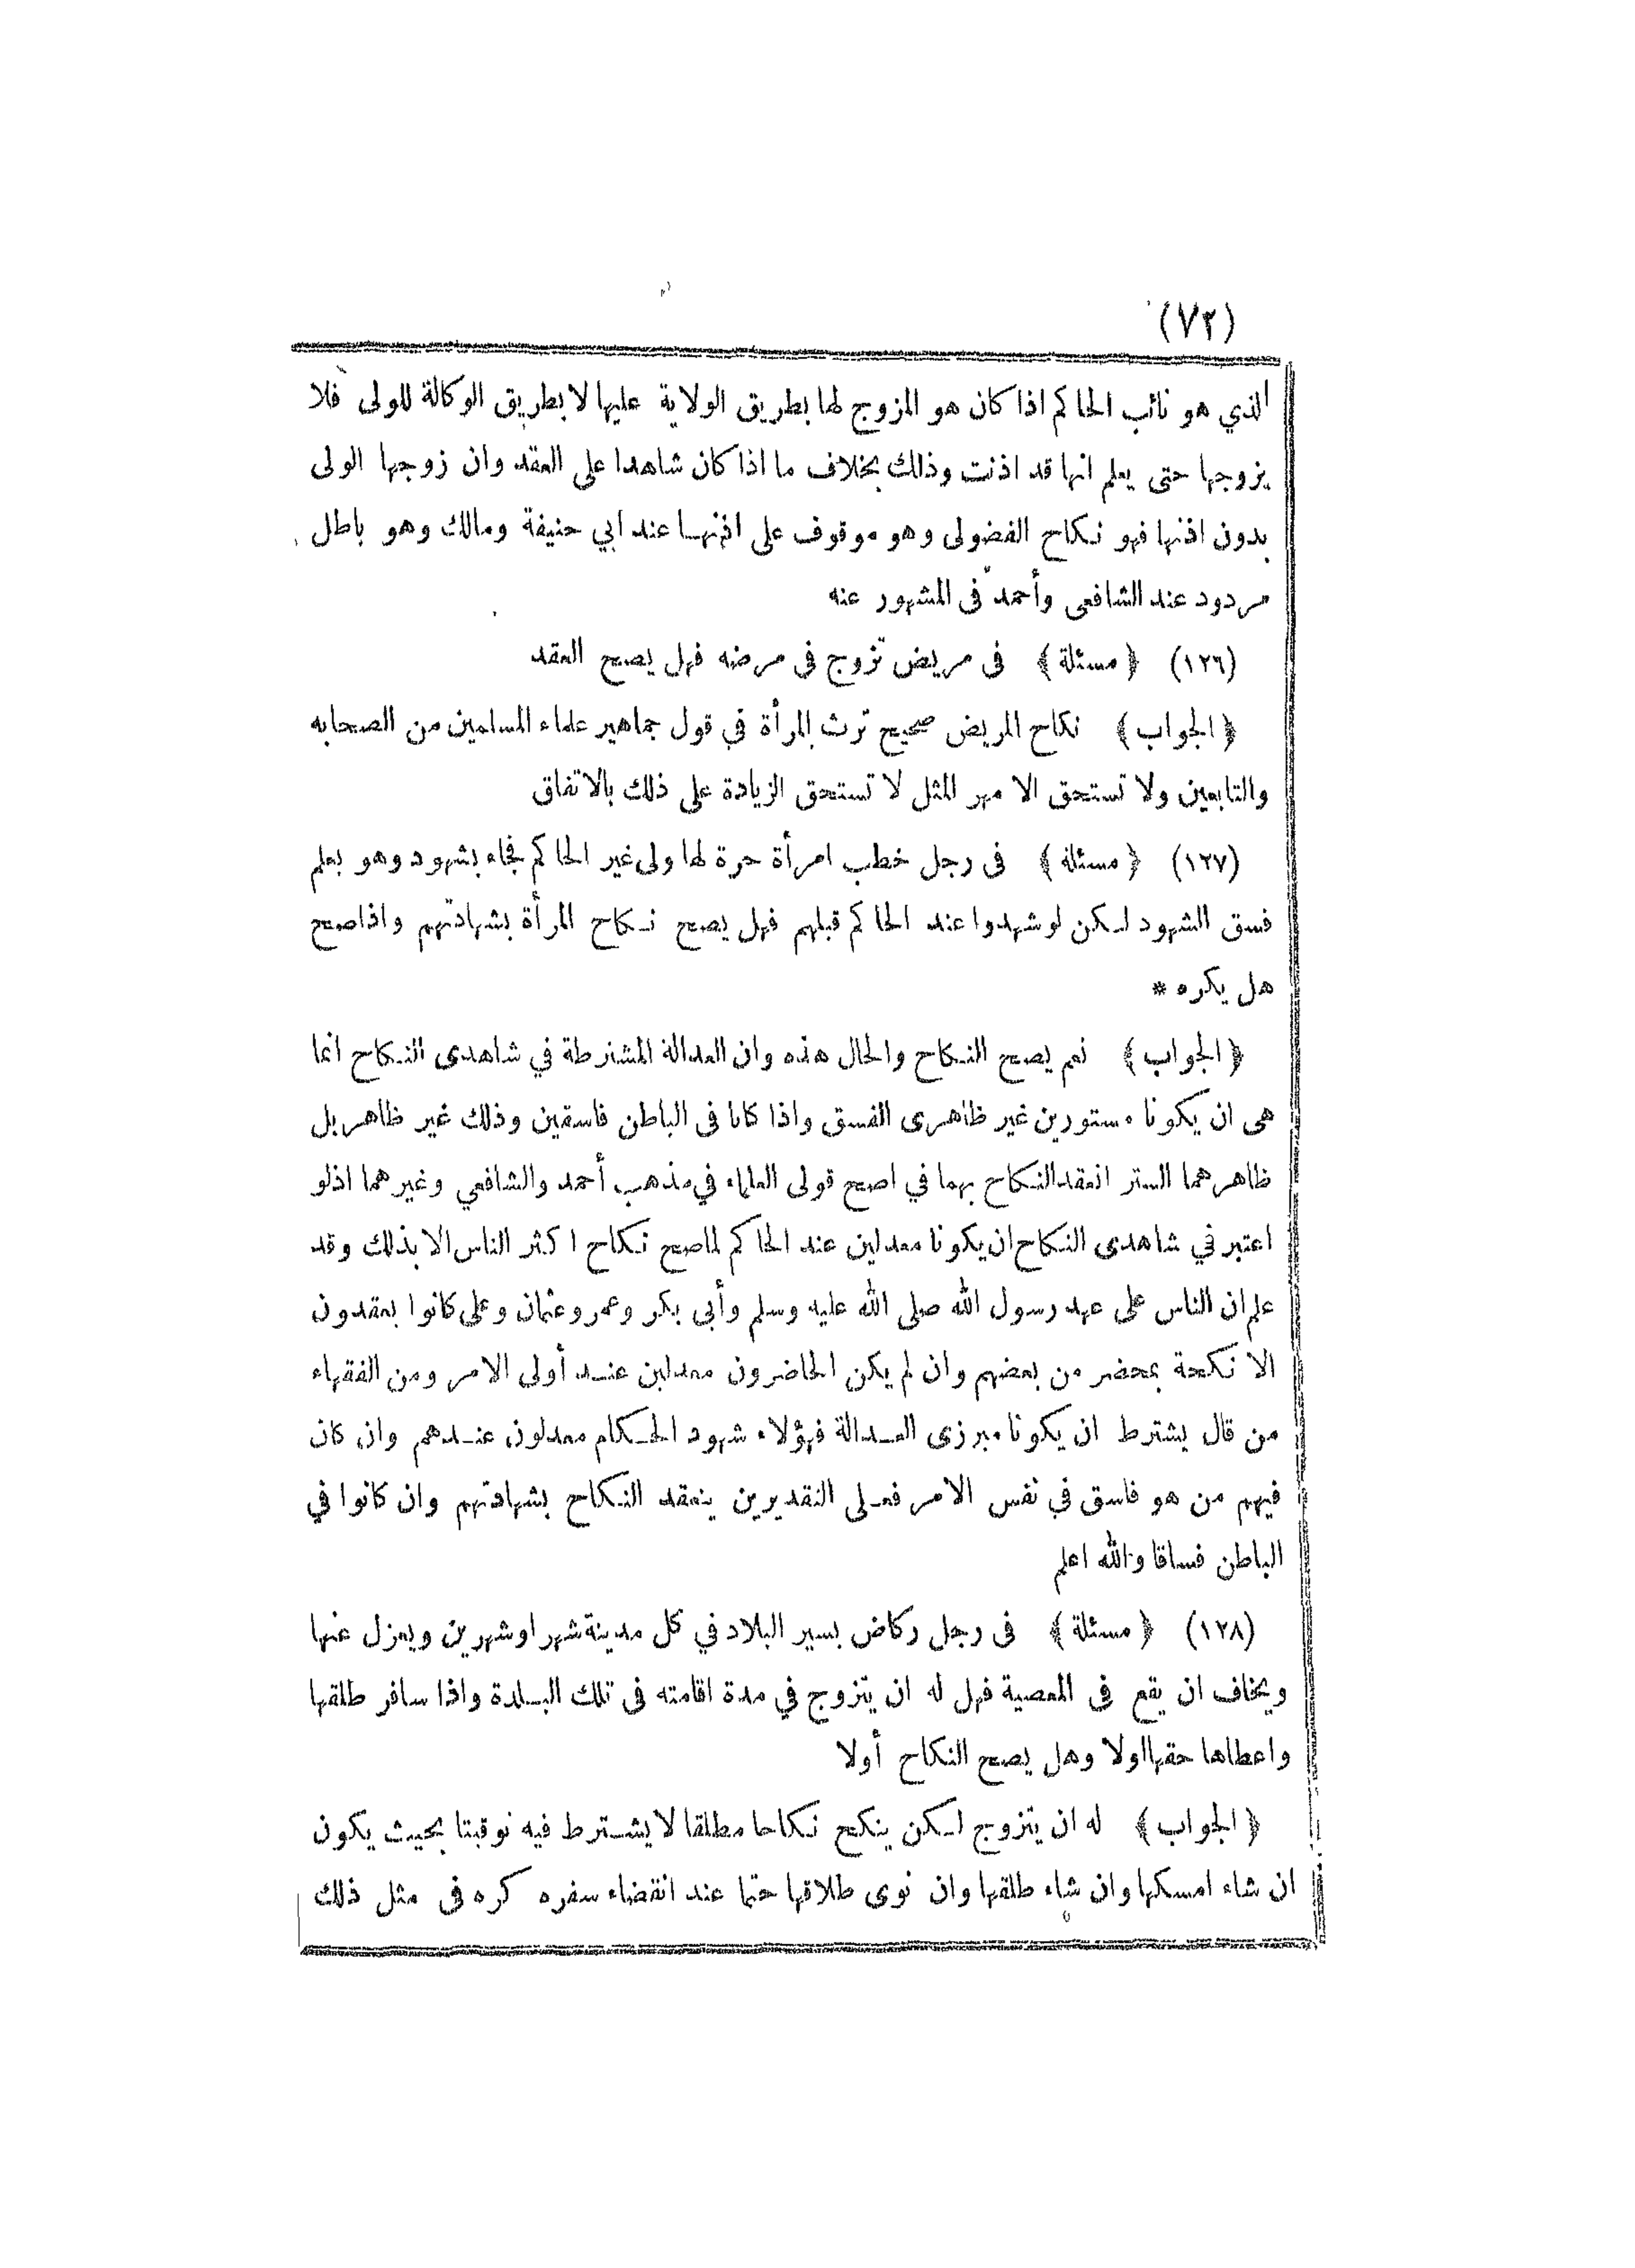 (٧٢)
الذي هو نائب الحاكم اذا كان هو المزوج لها بطريق الولاية عليها لا بطريق الوكالة للولى فلا
يزوجها حتى يعلم انها قد اذنت وذلك بخلاف ما اذا كان شاهدا على العقد وان زوجها الولى
بدون اذنها فهو نكاح الفضولى وهو موقوف على اذنها عند ابي حنيفة ومالك وهو باطل
مردود عند الشافعى وأحمد فى المشهور عنه
(١٢٦) ﴿ مسئلة ﴾ فى مريض تزوج فى مرضه فهل يصح العقد
﴿ الجواب ﴾ نكاح المريض صحيح ترث المرأة في قول جماهير علماء المسلمين من الصحابه
والتابعين ولا تستحق الا مهر المثل لا تستحق الزيادة على ذلك بالاتفاق
(١٢٧) ﴿ مسئلة ﴾ فى رجل خطب امرأة حرة لها ولى غير الحاكم فجاء بشهود وهو يعلم
فسق الشهود لكن لو شهدوا عند الحاكم قبلهم فهل يصح نكاح المرأة بشهادتهم واذا صح
هل يكره *
﴿ الجواب ﴾ نعم يصح النكاح والحال هذه وان العدالة المشترطة في شاهدى النكاح انما
هى ان يكونا مستورين غير ظاهرى الفسق واذا كانا فى الباطن فاسقين وذلك غير ظاهر بل
ظاهرهما الستر انعقد النكاح بهما في اصح قولى العلماء في مذهب أحمد والشافعي وغيرهما اذ لو
اعتبر في شاهدى النكاح ان يكونا معدلين عند الحاكم لما صح نكاح اكثر الناس الا بذلك وقد
علم ان الناس على عهد رسول الله صلى الله عليه وسلم وأبى بكر وعمر وعثمان وعلى كانوا يعقدون
الانكحة بمحضر من بعضهم وان لم يكن الحاضرون معدلين عند أولى الامر ومن الفقهاء
من قال يشترط ان يكونا مبرزى العدالة فهؤلاء شهود الحكام معدلون عندهم وان كان
فيهم من هو فاسق في نفس الامر فعلى التقديرين ينعقد النكاح بشهادتهم وان كانوا في
الباطن فساقا والله اعلم
(١٢٨) ﴿ مسئلة ﴾ فى رجل ركاض يسير البلاد في كل مدينة شهر او شهرين ويعزل عنها
ويخاف ان يقع فى المعصية فهل له ان يتزوج في مدة اقامته فى تلك البلدة واذا سافر طلقها
واعطاها حقها اولا وهل يصح النكاح أولا
﴿ الجواب ﴾ له ان يتزوج لكن ينكح نكاحا مطلقا لا يشترط فيه توقيتا بحيث يكون
ان شاء امسكها وان شاء طلقها وان نوى طلاقها حتما عند انقضاء سفره كره فى مثل ذلك